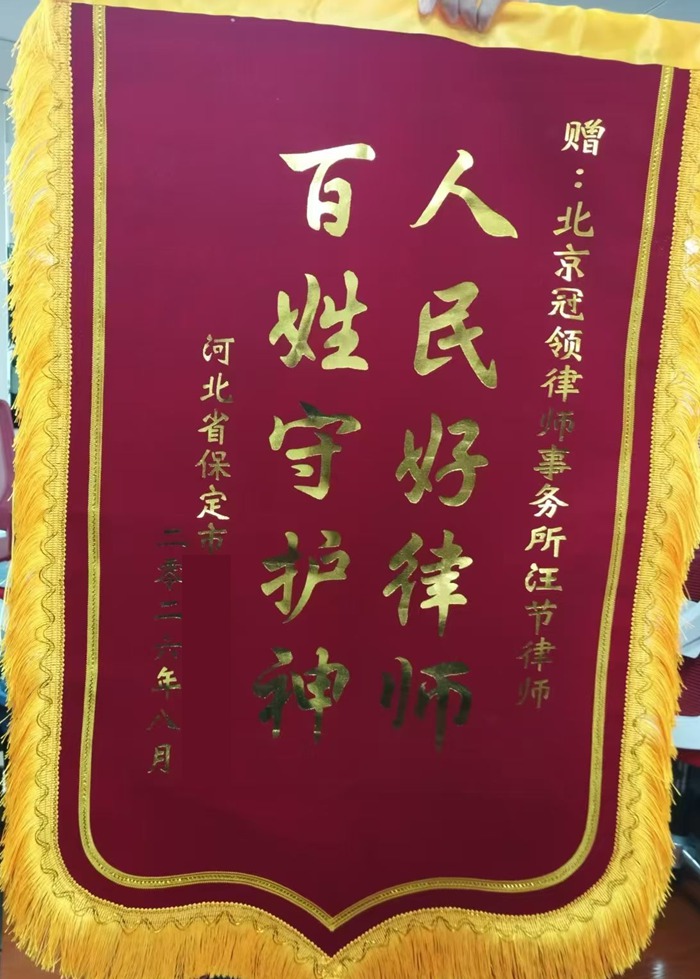 赠：北京冠领律师事务所汪节律师
人民好律师
百姓守护神
河北省保定市
二零二六年八月